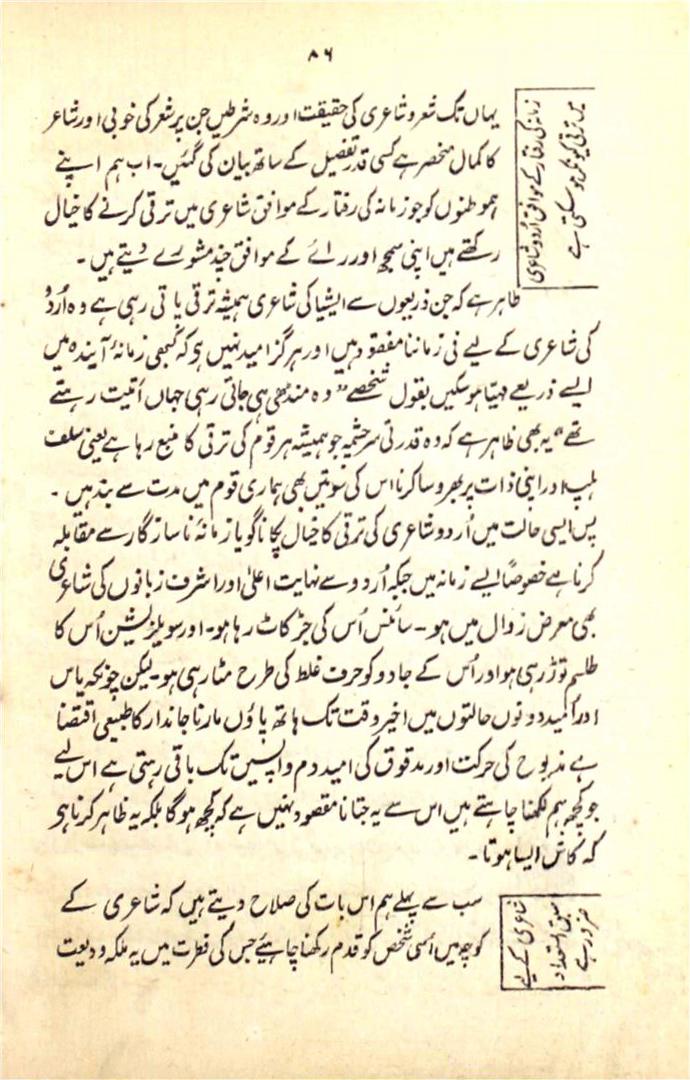 ۸۶
زمانہ کی رفتار کے موافق اُردو شاعری
میں ترقی کیونکر ہو سکتی ہے
یہاں تک شعر و شاعری کی حقیقت اور وہ شرطیں جن پر شعر کی خوبی اور شاعر
کا کمال منحصر ہے کسی قدر تفصیل کے ساتھ بیان کی گئیں۔ اب ہم اپنے
ہموطنوں کو جو زمانہ کی رفتار کے موافق شاعری میں ترقی کرنے کا خیال
رکھتے ہیں اپنی سمجھ اور راے کے موافق چند مشورے دیتے ہیں۔
ظاہر ہے کہ جن ذریعوں سے ایشیا کی شاعری ہمیشہ ترقی پاتی رہی ہے وہ اُردو
کی شاعری کے لیے فی زماننا مفقود ہیں اور ہرگز امید نہیں ہو کہ کبھی زمانۂ آیندہ میں
ایسے ذریعے مہیّا ہو سکیں بقول شخصے "وہ منڈھی ہی جاتی رہی جہاں اُتیت رہتے
تھے" یہ بھی ظاہر ہے کہ وہ قدرتی سرچشمہ جو ہمیشہ ہر قوم کی ترقی کا منبع رہا ہے یعنی سلف
ہلپ اور اپنی ذات پر بھروسا کرنا اس کی سوتیں بھی ہماری قوم میں مدت سے بند ہیں۔
پس ایسی حالت میں اُردو شاعری کی ترقی کا خیال پکانا گویا زمانۂ ناسازگار سے مقابلہ
کرنا ہے خصوصًا ایسے زمانہ میں جبکہ اُردو سے نہایت اعلیٰ اور اشرف زبانوں کی شاعری
بھی معرض زوال میں ہو۔ سائنس اُس کی جڑ کاٹ رہا ہو۔ اور سویلزیشن اُس کا
طلسم توڑ رہی ہو اور اُس کے جادو کو حرف غلط کی طرح مٹا رہی ہو۔ لیکن چونکہ یاس
اور اُمید دونوں حالتوں میں اخیر وقت تک ہاتھ پاؤں مارنا جاندار کا طبیعی اقتضا
ہے مذبوح کی حرکت اور مدقوق کی امید دم واپسیں تک باقی رہتی ہے اس لیے
جو کچھ ہم لکھنا چاہتے ہیں اس سے یہ جتانا مقصود نہیں ہے کہ کچھ ہو گا بلکہ یہ ظاہر کرنا ہو
کہ کاش ایسا ہوتا۔
شاعری کے لیے
استعداد
ضرور ہے
سب سے پہلے ہم اس بات کی صلاح دیتے ہیں کہ شاعری کے
کوچہ میں اُسی شخص کو قدم رکھنا چاہیئے جس کی فطرت میں یہ ملکہ ودیعت